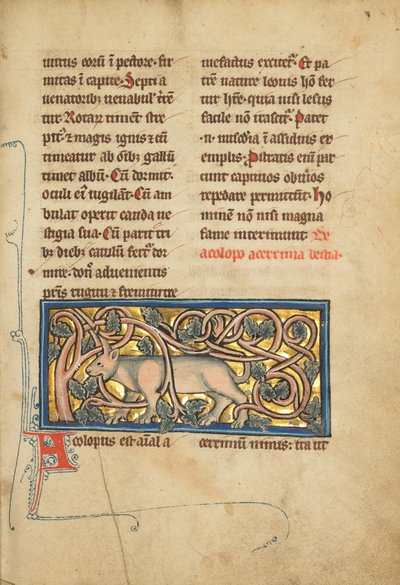 uirtus eorum ĩ pectore. fir
mitas ĩ capite. Septi a
uenatoribꝫ
tur Rotaꝝ timent stre
pitꝰ ⁊ magis ignis ⁊ cũ
timeatur ab oĩbꝫ gallũ
timet albũ. Cũ dormit
oculi eiꝰ uigilant. Cũ am
bulat operit cauda ue
stigia sua. Cũ parit tri
bꝫ diebꝫ catulũ
mire. donͨ adueniens
pr̃is rugitu ⁊
mefactus excitetᷣ. Et pa
tet nature leonis hõ
quia nisi lesus
facile nõ irascitᷣ. Patet
.n. mĩa ĩ assiduis ex
emplis. Prstratis enĩ par
cunt captiuos obuios
repedare permittunt. Ho
minẽ nõ nisi magna
fame interimunt De
acolopo acerrima bestia.
Acolopus est aĩal a
cerrimũ nimis: ita ut